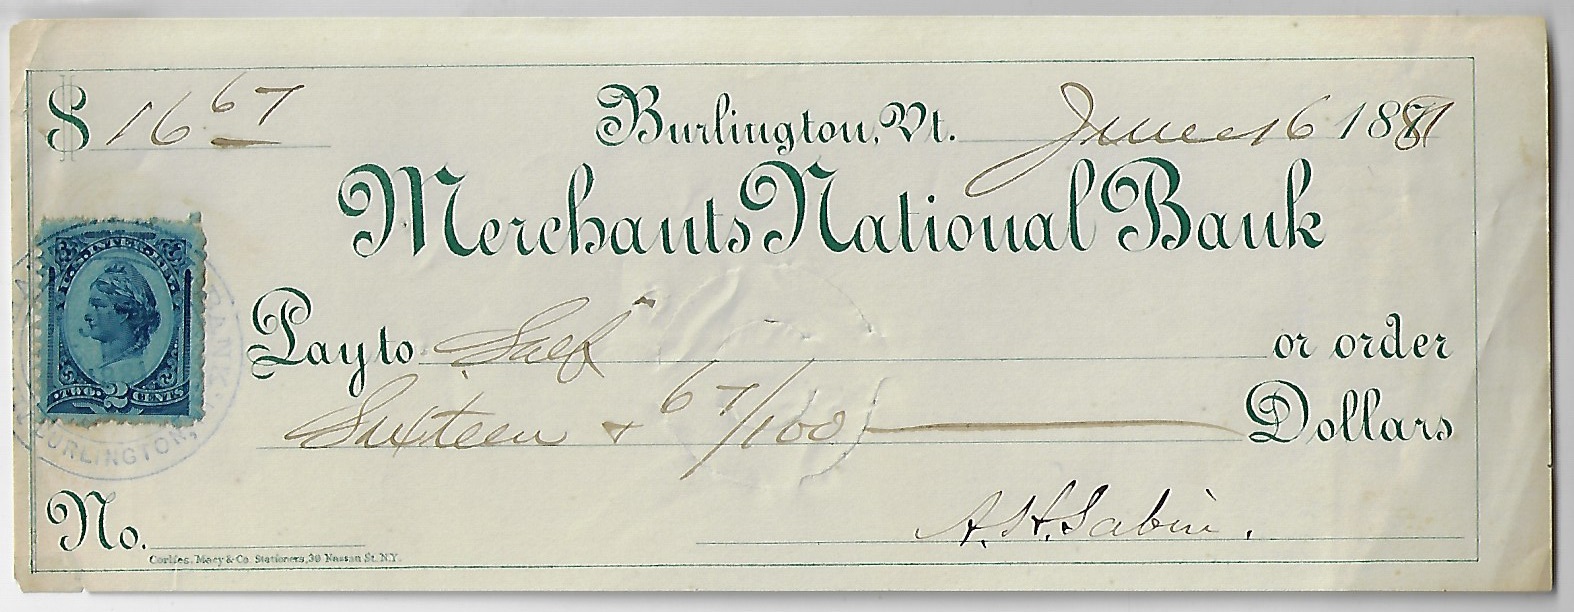 $ 16 67
Burlington, Vt. June 16 1881
Merchants National Bank
U.S. INTER. REV.
TWO 2 CENTS
BANK
BURLINGTON,
Pay to Self or order
Sixteen & 67/100 Dollars
A. H. Sabin.
No.
Corlies, Macy & Co. Stationers, 39 Nassau St. N.Y.